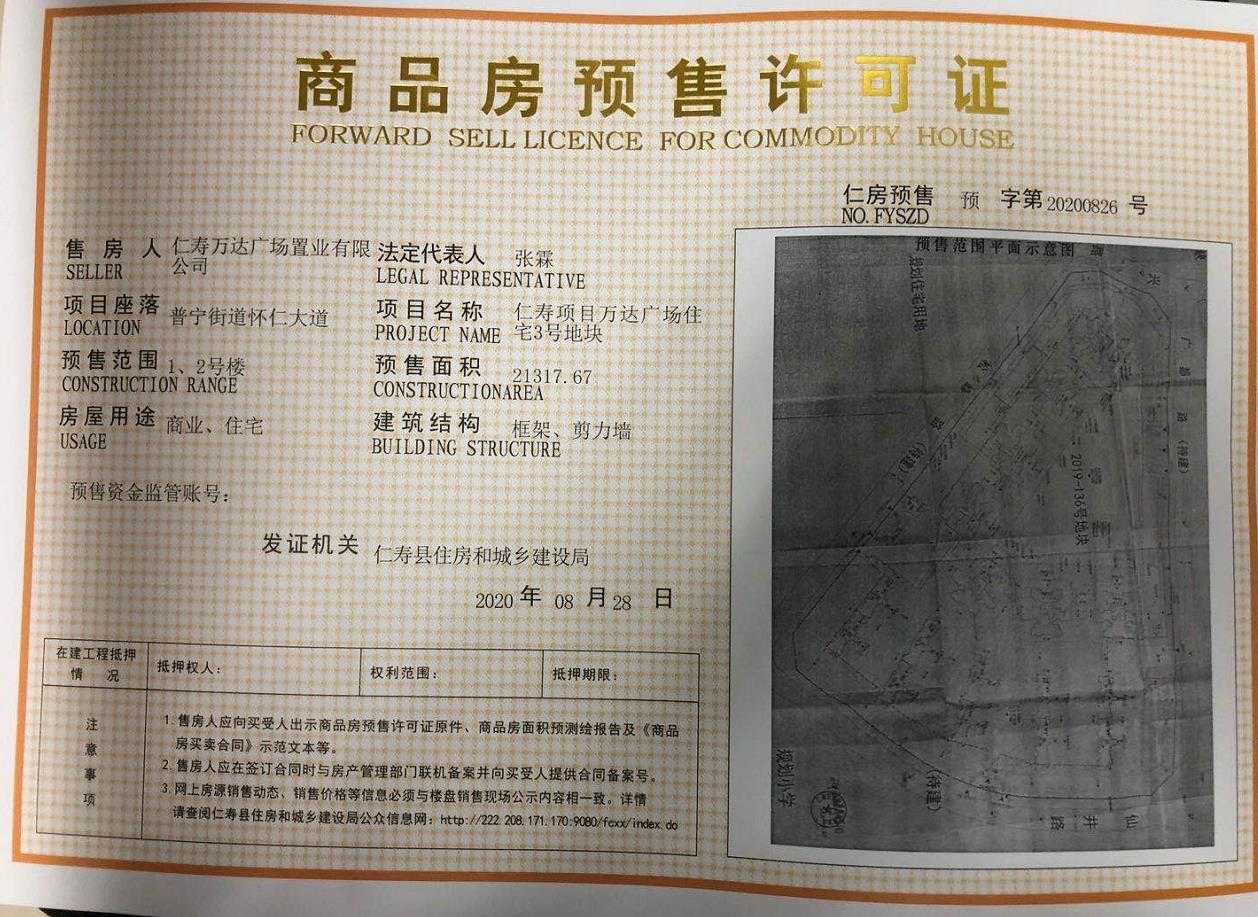 商品房预售许可证
FORWARD SELL LICENCE FOR COMMODITY HOUSE
仁房预售 预 字第20200826 号
NO.FYSZD
售房人 仁寿万达广场置业有限公司
SELLER
法定代表人 张霖
LEGAL REPRESENTATIVE
项目座落 普宁街道怀仁大道
LOCATION
项目名称 仁寿项目万达广场住宅3号地块
PROJECT NAME
预售范围 1、2号楼
CONSTRUCTION RANGE
预售面积 21317.67
CONSTRUCTIONAREA
房屋用途 商业、住宅
USAGE
建筑结构 框架、剪力墙
BUILDING STRUCTURE
预售资金监管账号:
发证机关 仁寿县住房和城乡建设局
2020 年 08 月 28 日
在建工程抵押情况
抵押权人:
权利范围:
抵押期限:
注意事项
1.售房人应向买受人出示商品房预售许可证原件、商品房面积预测绘报告及《商品
房买卖合同》示范文本等。
2.售房人应在签订合同时与房产管理部门联机备案并向买受人提供合同备案号。
3.网上房源销售动态、销售价格等信息必须与楼盘销售现场公示内容相一致。详情
请查阅仁寿县住房和城乡建设局公众信息网:http://222 208.171.170:9080/fcxx/index.do
预售范围平面示意图
规划住宅用地
路
(待建)
2019-136号地块
规划小学
(待建)
仙井路